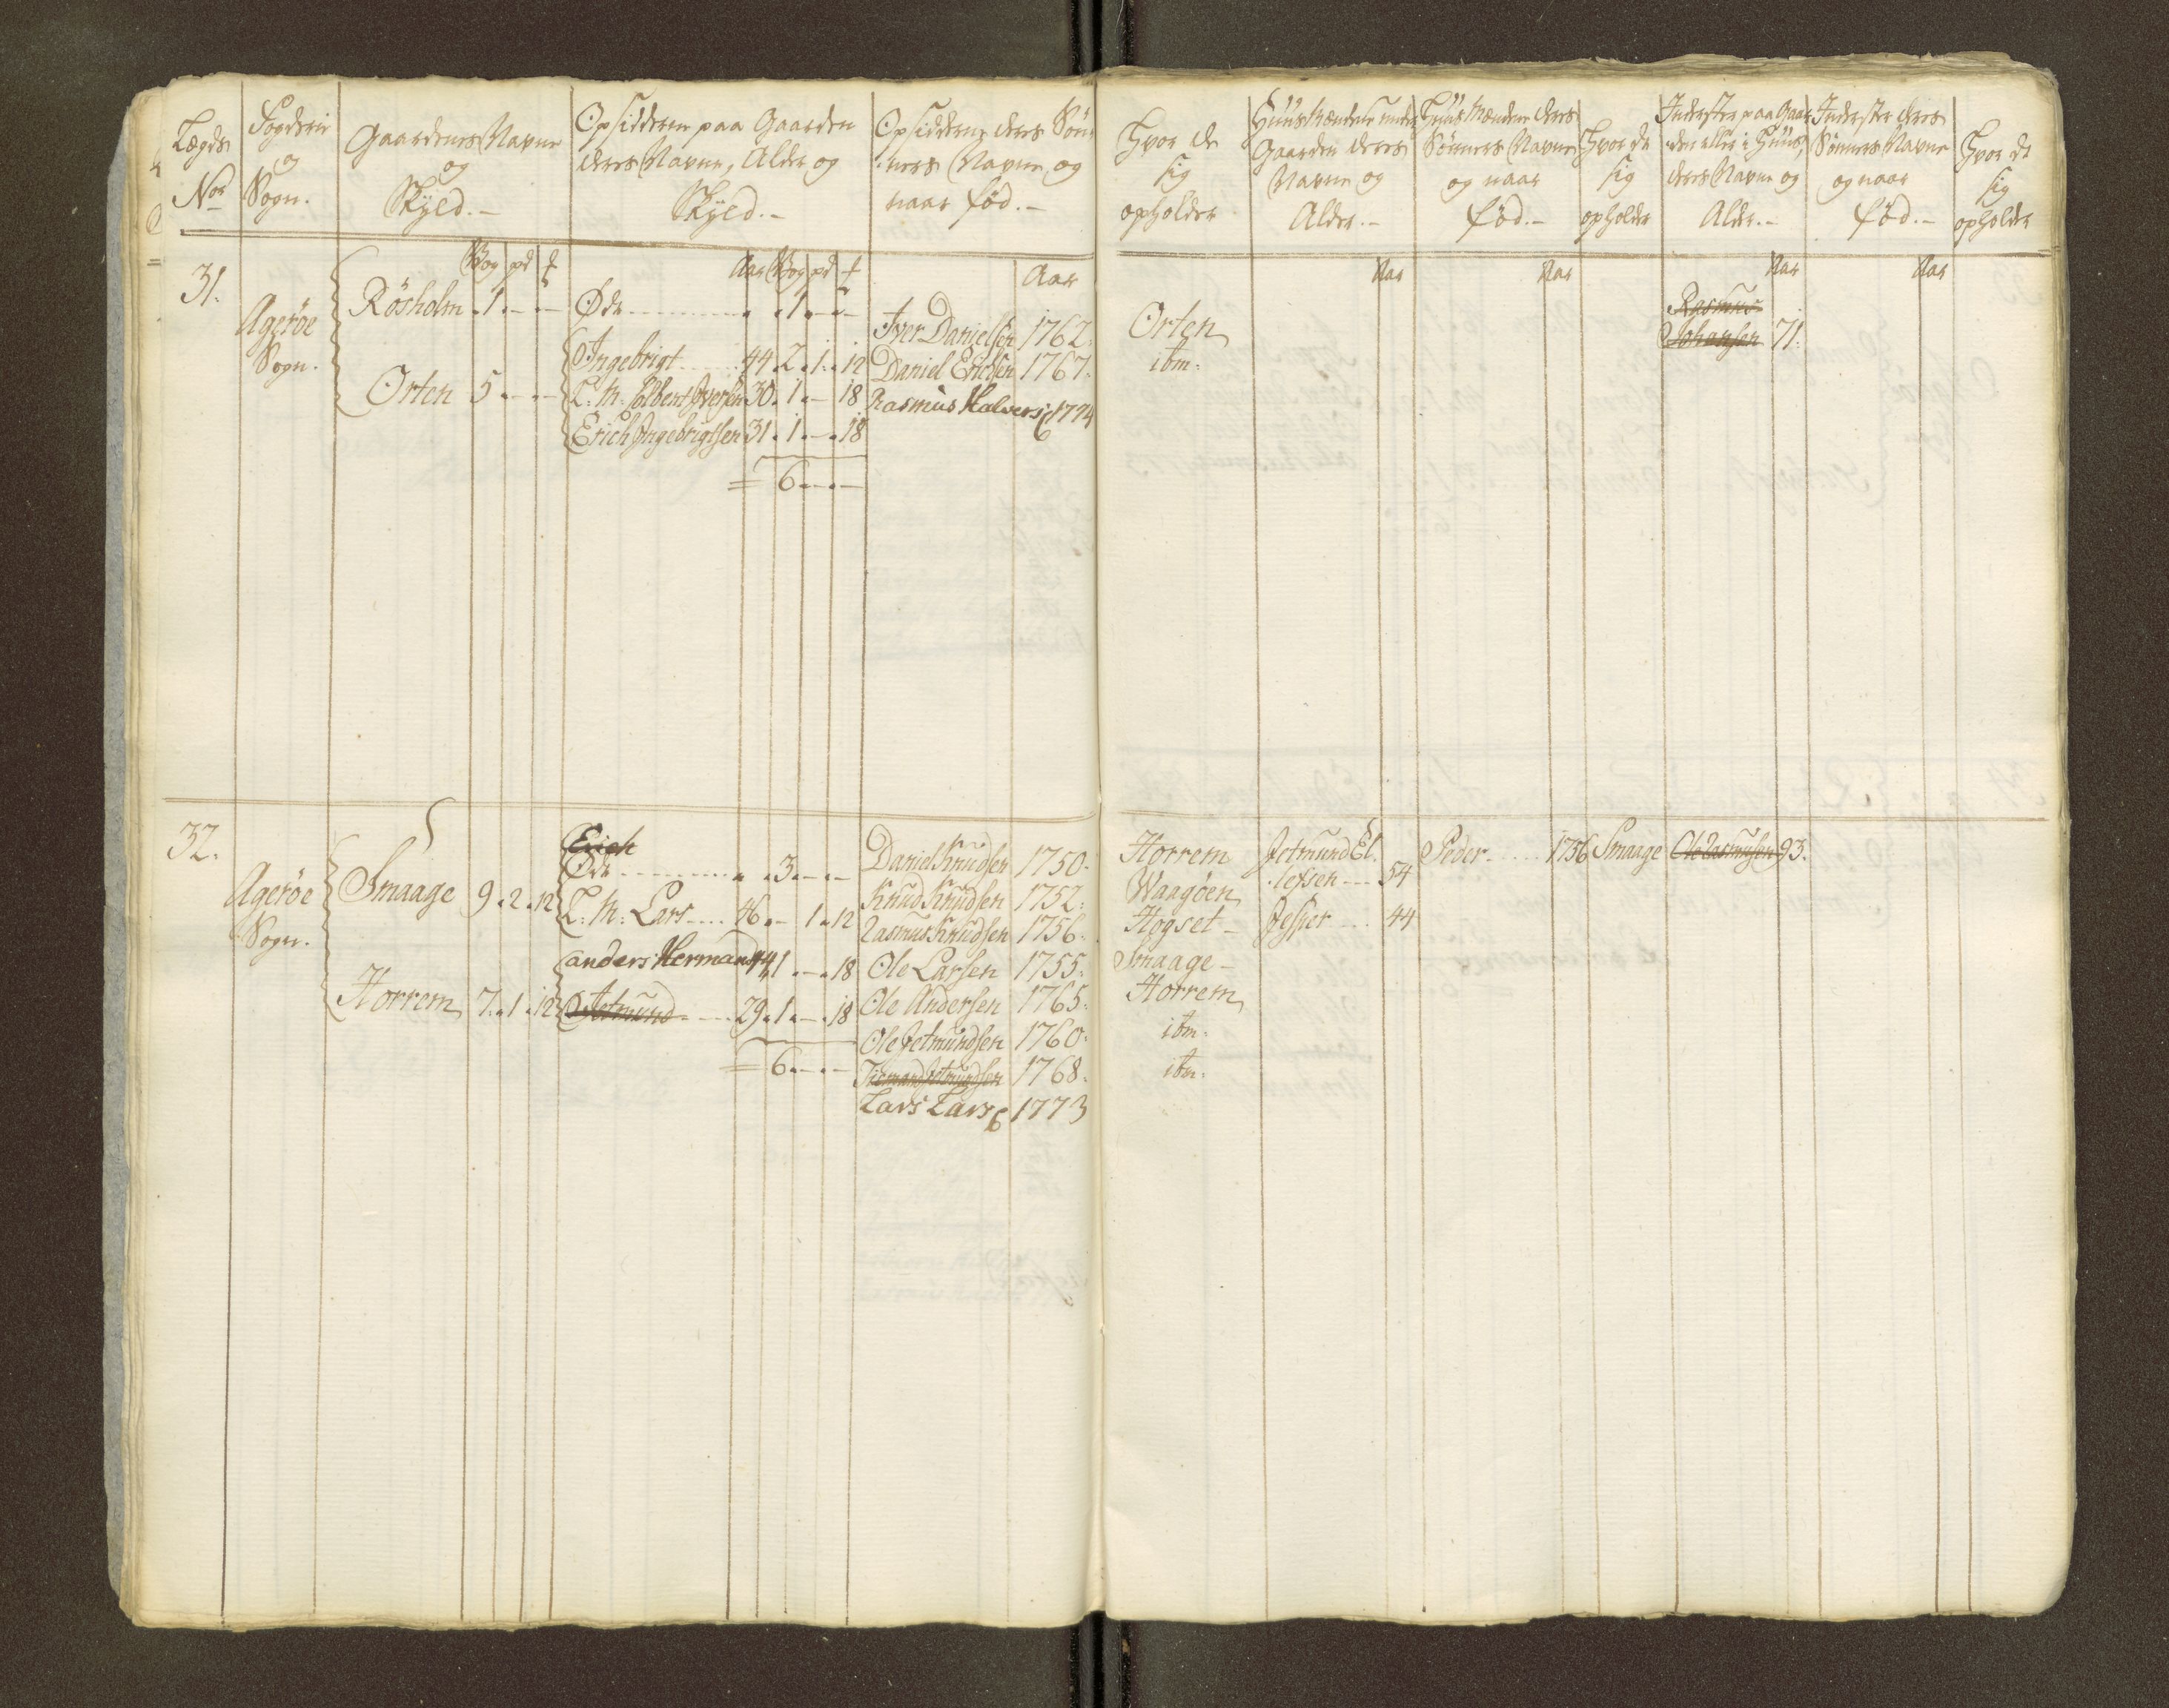 Lægds
No
Fogderie
og
Sogn.
Gaardenes Navne
og
Skyld.-
Opsiddere paa Gaarden
deres Navne, Alder og
Skyld.-
Opsidderne deres Søn-
ners Navne og
naar fød.-
Hvor de
sig
opholder
Huusmændene under
Gaarden deres
Navne og
Alder.-
Huusmændene deres
Sønners Navne
og naar
fød.-
Hvor de
sig
opholder
Inderster paa Gaar-
den eller i Huus,
deres Navne og
Alder.-
Inderster deres
Sønners Navne
og naar
fød.-
Hvor de
sig
opholder
Wog pd
Aar Wog pd
Aar
Aar
Aar
Aar
Aar
31.
Agerøe
Sogn.
Røsholm 1. - -
Orten 5 - -
Øde 1. - -
Ingebrigt 44 2. 1. 12
L: M: Colbent Iversen 30. 1. - 18
Erich Ingebrigtsen 31. 1. - 18
= 6. - -
Iver Danielsen 1762.
Daniel Ericsen 1767.
Rasmus Halvers: 6 1774
Orten
ibm.
Rasmus
Johansen 71.
32.
Agerøe
Sogn.
Smaage 9. 2. 12
Horrem 7. 1. 12
Erich
Øde 3. - -
L: M: Lars 46. - 1. 12
anders Hermands 44 1. - 18
Jetmund 29. 1. - 18
= 6. - -
Daniel Knudsen 1750.
Knud Knudsen 1752.
Rasmus Knudsen 1756.
Ole Larsen 1755.
Ole Andersen 1765.
Ole Jetmundsen 1760.
Jetmundsen 1768.
Lars Lars: 6 1773
Horrem
Waagøen
Hogset -
Smaage -
Horrem
ibm.
ibm.
Jetmund El.
lefsen 54
Jesper 44
Peder 1756 Smaage
Ole Rasmusen 93.